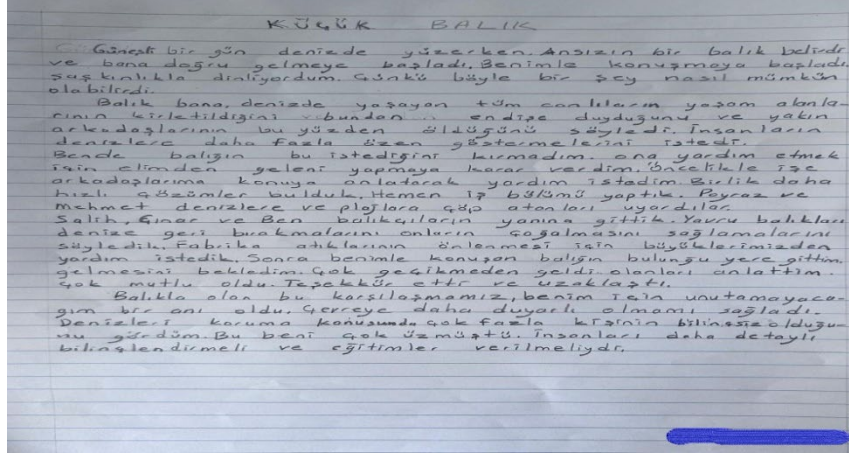 KÜÇÜK BALIK
Güneşli bir gün denizde yüzerken. Ansızın bir balık belirdi
ve bana doğru gelmeye başladı. Benimle konuşmaya başladı.
Şaşkınlıkla dinliyordum. Çünkü böyle bir şey nasıl mümkün
olabilirdi.
Balık bana, denizde yaşayan tüm canlıların yaşam alanla-
rının kirletildiğini bundan endişe duyduğunu ve yakın
arkadaşlarının bu yüzden öldüğünü söyledi. İnsanların
denizlere daha fazla özen göstermelerini istedi.
Bende balığın bu istediğini kırmadım. ona yardım etmek
için elimden geleni yapmaya karar verdim. Öncelikle ise
arkadaşlarıma konuyu anlatarak yardım istedim. Birlik daha
hızlı çözümler bulduk. Hemen iş bölümü yaptık. Poyraz ve
Mehmet denizlere ve plajlara çöp atanları uyardılar.
Salih, Çınar ve Ben balıkçıların yanına gittik. Yavru balıkları
denize geri bırakmalarını onların çoğalmasını sağlamalarını
söyledik. Fabrika atıklarının önlenmesi için büyüklerimizden
yardım istedik. Sonra benimle konuşan balığın bulunğu yere gittim.
gelmesini bekledim. Çok geçikmeden geldi. olanları anlattım.
Çok mutlu oldu. Teşekkür etti ve uzaklaştı.
Balıkla olan bu karşılaşmamız, benim için unutamayaca-
ğım bir anı oldu. Çevreye daha duyarlı olmamı sağladı.
Denizleri koruma konusunda çok fazla kişinin bilinçsiz olduğu-
nu gördüm. Bu beni çok üzmüştü. İnsanları daha detaylı
bilinçlendirmeli ve eğitimler verilmeliydi.